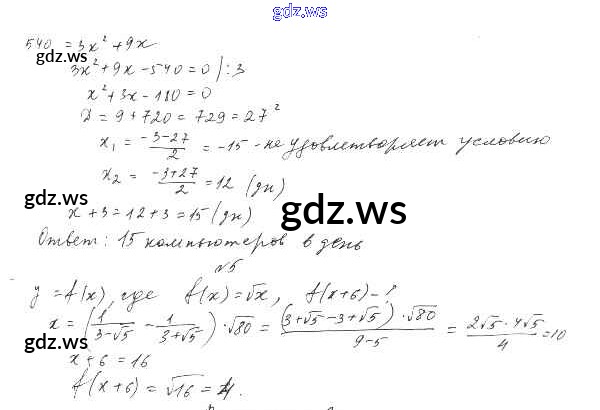 gdz.ws
540 = 3x² + 9x
gdz.ws
3x² + 9x - 540 = 0 / : 3
x² + 3x - 180 = 0
D = 9 + 720 = 729 = 27²
x₁ = (-3-27)/2 = -15 - не удовлетворяет условию
x₂ = (-3+27)/2 = 12 (дн)
gdz.ws
x + 3 = 12 + 3 = 15 (дн)
gdz.ws
Ответ: 15 компьютеров в день
№5
y = f(x), где f(x) = √x, f(x+6) - ?
x = (1/(3-√5) - 1/(3+√5)) · √80 = ((3+√5-3+√5) · √80)/(9-5) = (2√5 · 4√5)/4 = 10
gdz.ws
x + 6 = 16
f(x+6) = √16 = 4.
gdz.ws